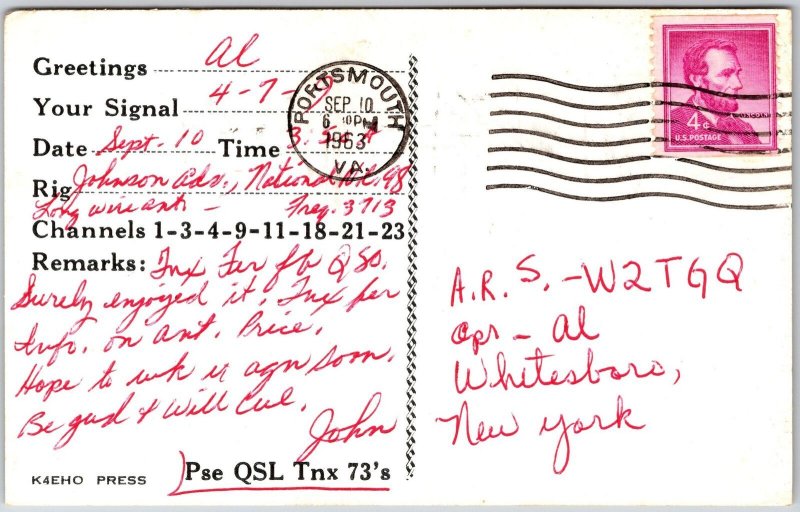 Greetings Al
Your Signal 4-7-
Date Sept. 10 Time
Rig Johnson Adv., National N.C. 98
Long wire ant - Freq. 3713
Channels 1-3-4-9-11-18-21-23
Remarks: Tnx Fer fb QSO.
Surely enjoyed it. Tnx fer
Info. on ant. Price.
Hope to wk u agn soon.
Be gud & will cul.
John
K4EHO PRESS
Pse QSL Tnx 73's
PORTSMOUTH
SEP 10
6 PM
1963
VA.
LINCOLN
4¢
U.S. POSTAGE
A.R.S. - W2TGQ
opr - Al
Whitesboro,
New York